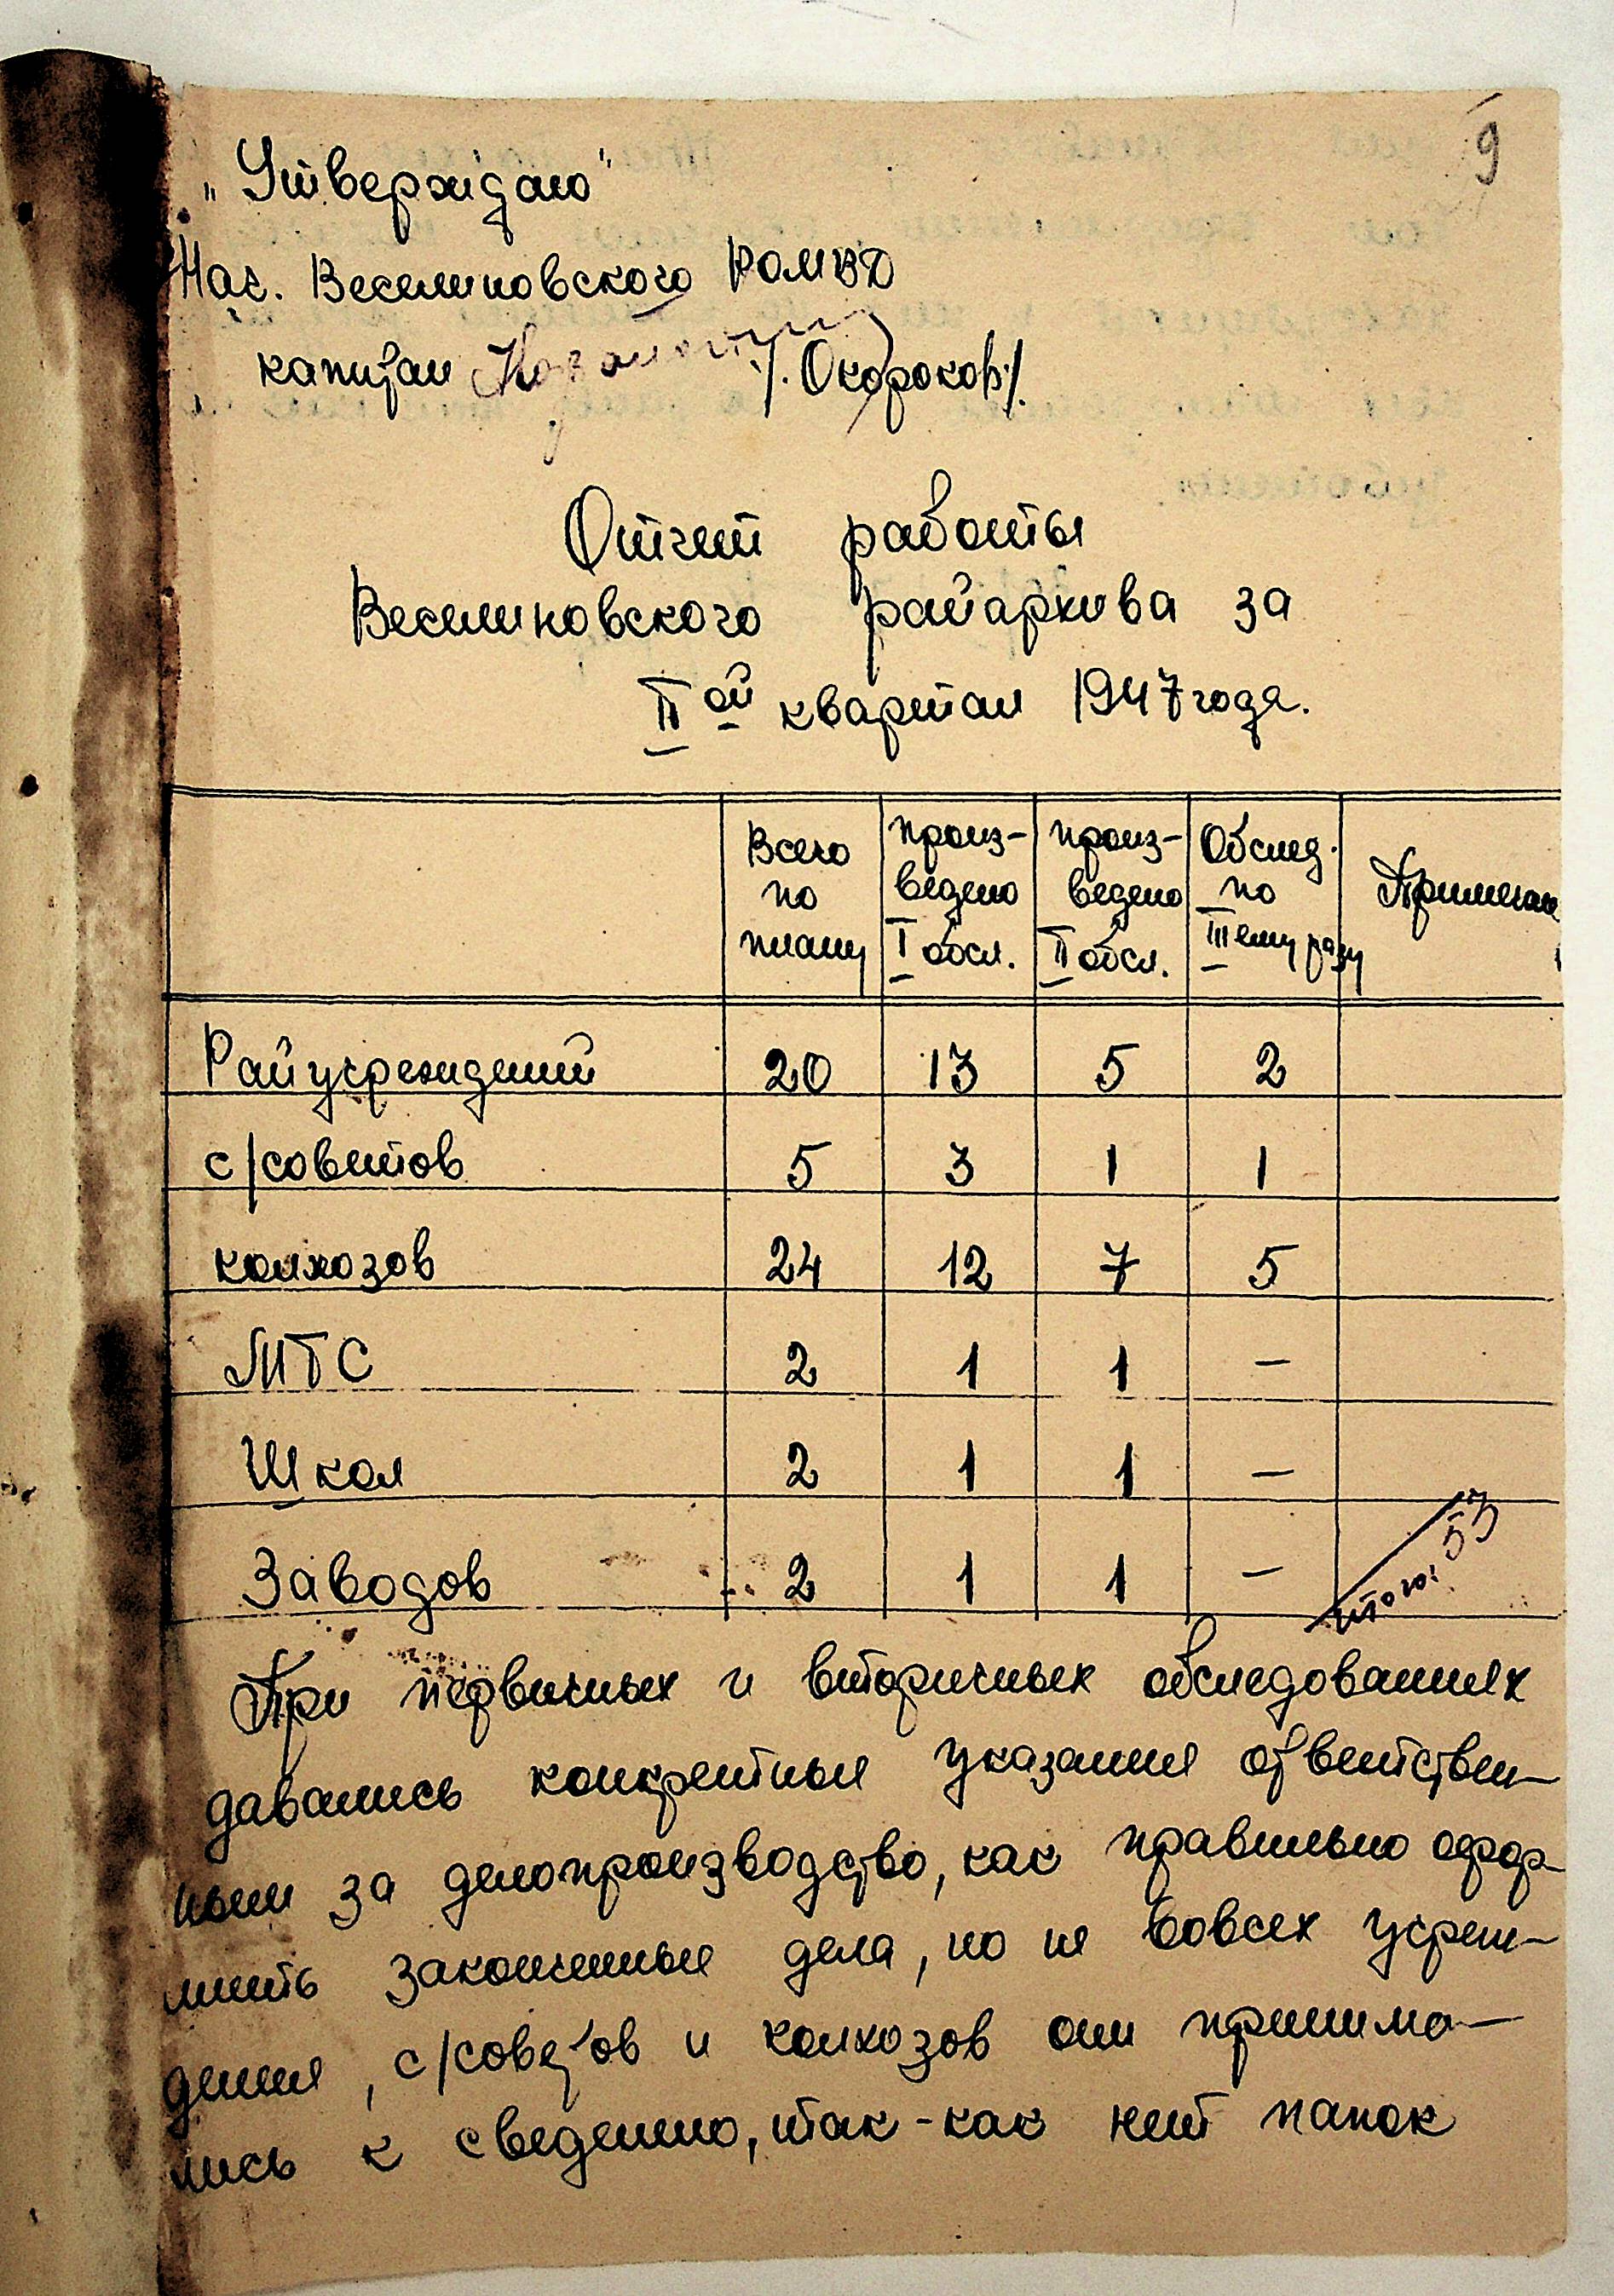 9
„Утверждаю"
Нач. Веселиновского РОМВД
капитан /. Окороков/.
Отчет работы
Веселиновского райархива за
II ой квартал 1947 года.
Всего по плану | произ-ведено I обсл. | произ-ведено II обсл. | Обслед. по III ему разу | Примечан
Райучреждений 20 13 5 2
с/советов 5 3 1 1
колхозов 24 12 7 5
МТС 2 1 1 –
Школ 2 1 1 –
Заводов 2 1 1 –
итого: 53
При первичных и вторичных обследованиях
давались конкретные указания ответствен-
ным за делопроизводство, как правильно офор-
мить законченные дела, но не вовсех учреж-
дения, с/советов и колхозов они принима-
лись к сведению, так-как нет папок